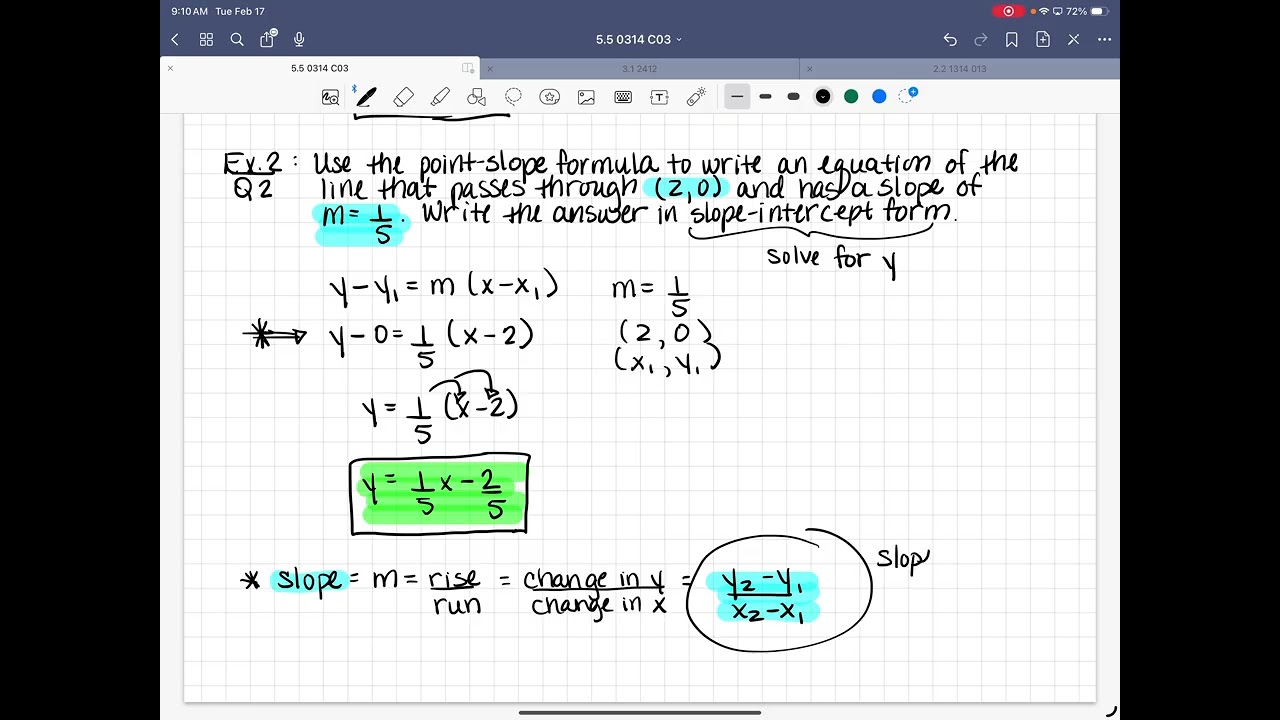 9:10 AM Tue Feb 17
72%
5.5 0314 C03
5.5 0314 C03
3.1 2412
2.2 1314 013
Ex.2 : Use the point-slope formula to write an equation of the
Q2 line that passes through (2,0) and has a slope of
m = 1/5. Write the answer in slope-intercept form.
solve for y
y - y₁ = m (x - x₁)
m = 1/5
y - 0 = 1/5 (x - 2)
(2, 0)
(x₁, y₁)
y = 1/5 (x - 2)
y = 1/5 x - 2/5
* slope = m = rise/run = change in y/change in x = y₂ - y₁/x₂ - x₁
slop